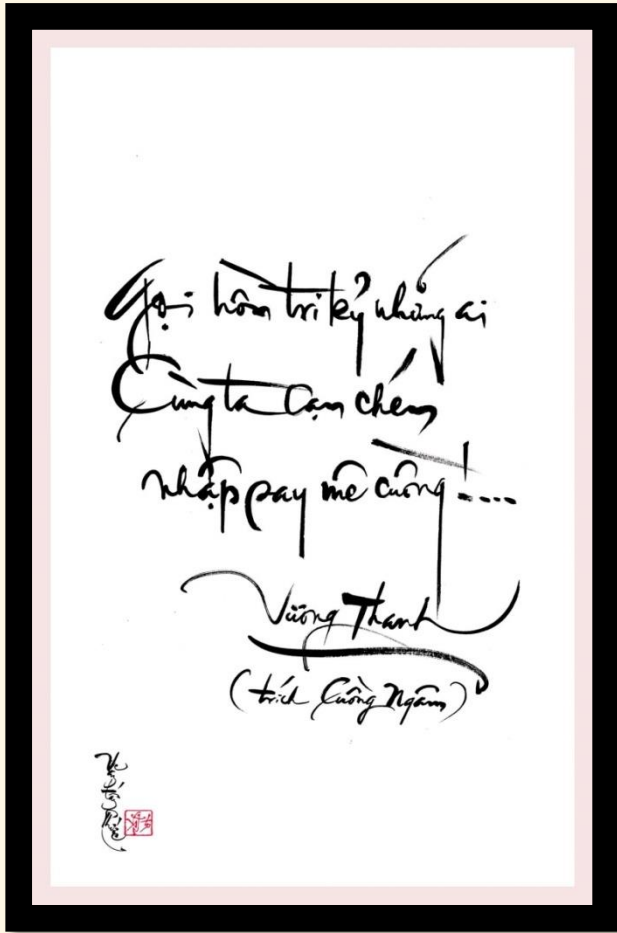 Gọi hồn tri kỷ những ai
Cùng ta Cạn chén
nhập say mê cuồng !....
Vương Thanh
(trích Cuồng Ngâm)